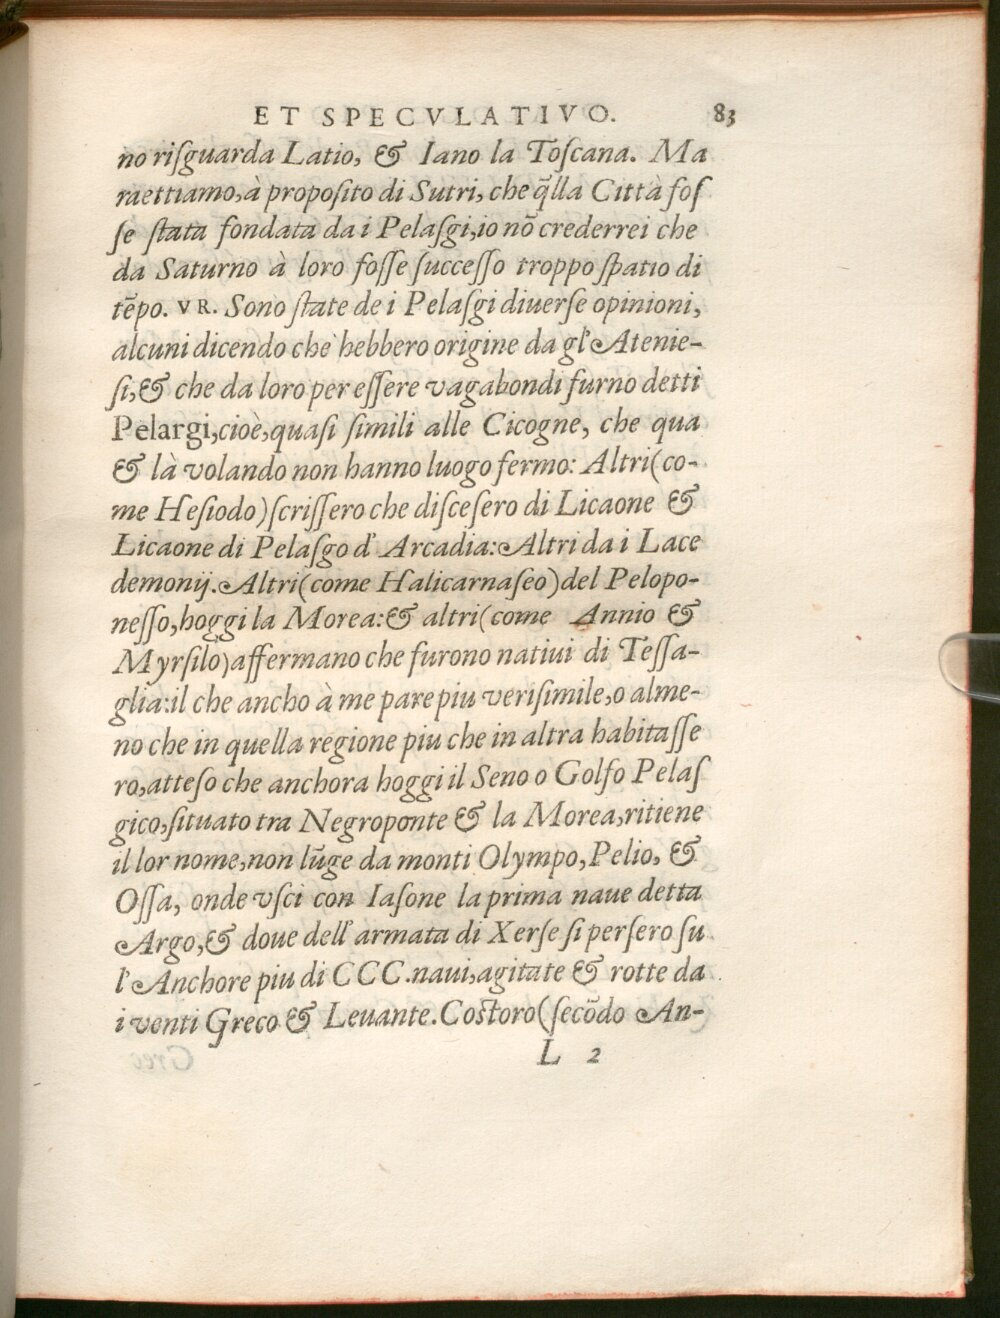 ET SPECVLATIVO. 83
no riſguarda Latio, & Iano la Toſcana. Ma
raettiamo, à propoſito di Sutri, che q̃lla Città foſ
ſe ſtata fondata da i Pelaſgi, io nõ crederrei che
da Saturno à loro foſſe ſucceſſo troppo ſpatio di
tẽpo. VR. Sono ſtate de i Pelaſgi diuerſe opinioni,
alcuni dicendo che hebbero origine da gl'Atenie-
ſi, & che da loro per eſſere vagabondi furno detti
Pelargi, cioè, quaſi ſimili alle Cicogne, che qua
& là volando non hanno luogo fermo: Altri (co-
me Heſiodo) ſcriſſero che diſceſero di Licaone &
Licaone di Pelaſgo d'Arcadia: Altri da i Lace
demonij. Altri (come Halicarnaſeo) del Pelopo-
neſſo, hoggi la Morea: & altri (come Annio &
Myrſilo) affermano che furono natiui di Teſſa-
glia: il che ancho à me pare piu veriſimile, o alme-
no che in quella regione piu che in altra habitaſſe
ro, atteſo che anchora hoggi il Seno o Golfo Pelaſ
gico, ſituato tra Negroponte & la Morea, ritiene
il lor nome, non lũge da monti Olympo, Pelio, &
Oſſa, onde vſci con Iaſone la prima naue detta
Argo, & doue dell'armata di Xerſe ſi perſero ſu
l'Anchore piu di CCC. naui, agitate & rotte da
i venti Greco & Leuante. Coſtoro (ſecõdo An-
L 2